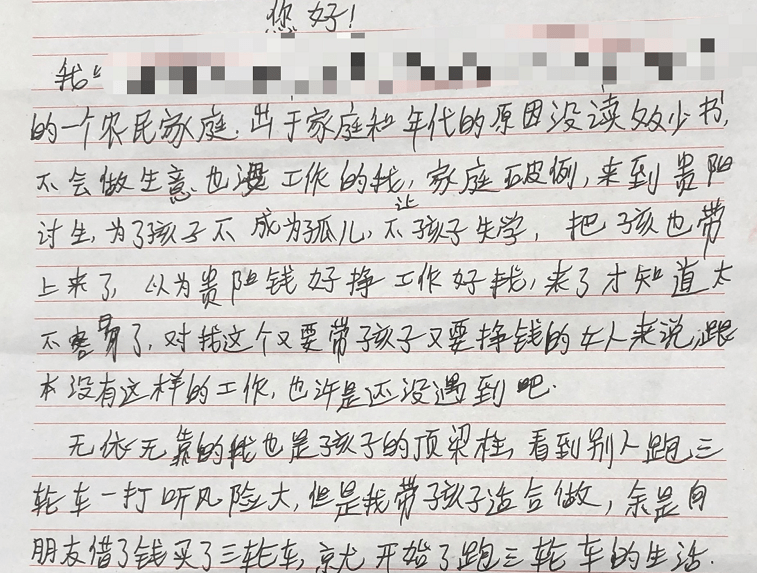 您好!
我
的一个农民家庭.出于家庭和年代的原因没读多少书,
不会做生意也没工作的我,家庭破例,来到贵阳
讨生,为了孩子不成为孤儿,不让孩子失学,把孩子也带
上来了,以为贵阳钱好挣工作好找,来了才知道太
不容易了,对我这个又要带孩子又要挣钱的女人来说,跟
本没有这样的工作,也许是还没遇到吧.
无依无靠的我也是孩子的顶梁柱,看到别人跑三
轮车一打听风险大,但是我带孩子适合做,余是向
朋友借了钱买了三轮车,就开始了跑三轮车的生活.